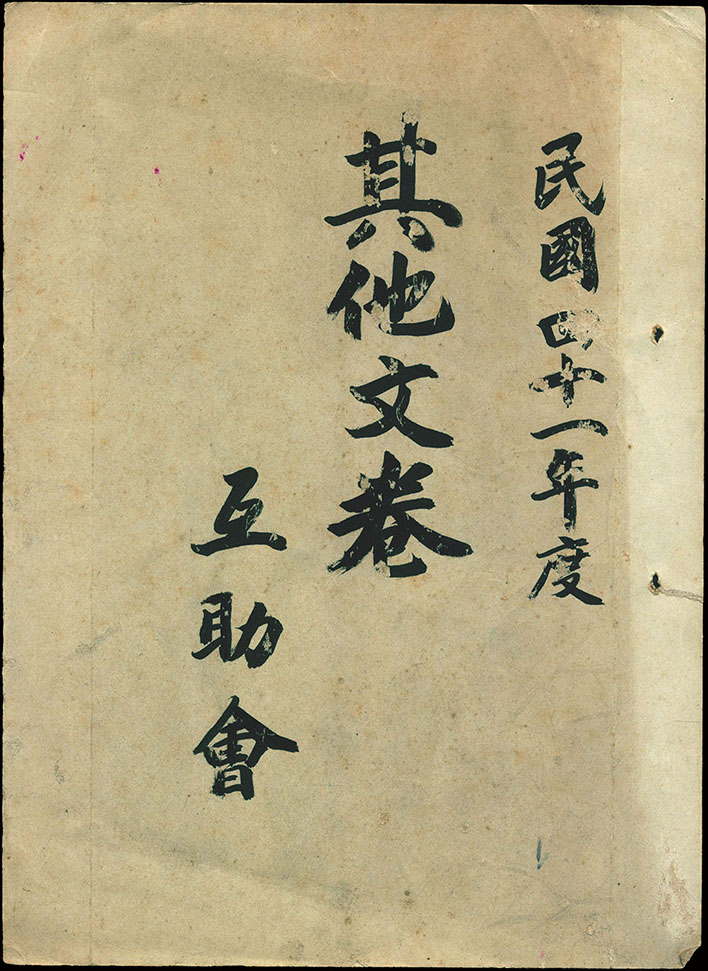 民國四十一年度
其他文卷
互助會